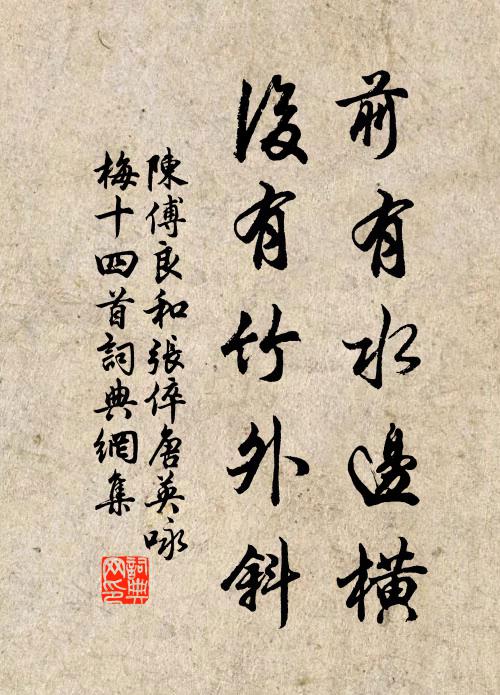 前有水邊橫
後有竹外斜
陳傅良和張倅唐英咏
梅十四首詞典網集
詞典
网印